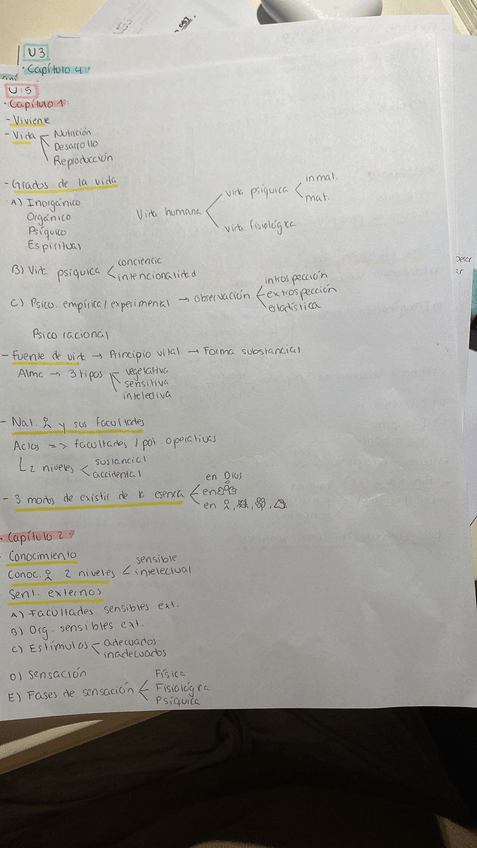 U3
· Capítulo 4
U.5
· Capítulo 1
- Viviente
- Vida
Nutrición
Desarrollo
Reproducción
- Grados de la vida
A) Inorgánico
Orgánico
Psíquico
Espiritual
Vida humana
vida psíquica
inmat.
mat.
vida fisiológica
B) Vida psíquica
conciencia
intencionalidad
C) Psico. empírica/experimental → observación
introspección
extrospección
estadística
Psico racional
- Fuente de vida → Principio vital → Forma substancial
Alma → 3 tipos
vegetativa
sensitiva
intelectiva
- Nat. y sus facultades
Actos => facultades / pot. operativas
2 niveles
sustancial
accidental
- 3 modos de existir de la esencia
en Dios
en
en
· Capítulo 2
- Conocimiento
Conoc. 2 niveles
sensible
intelectual
Sent. externos
A) Facultades sensibles ext.
B) Org. sensibles ext.
C) Estímulos
adecuados
inadecuados
D) Sensación
E) Fases de sensación
Física
Fisiológica
Psíquica